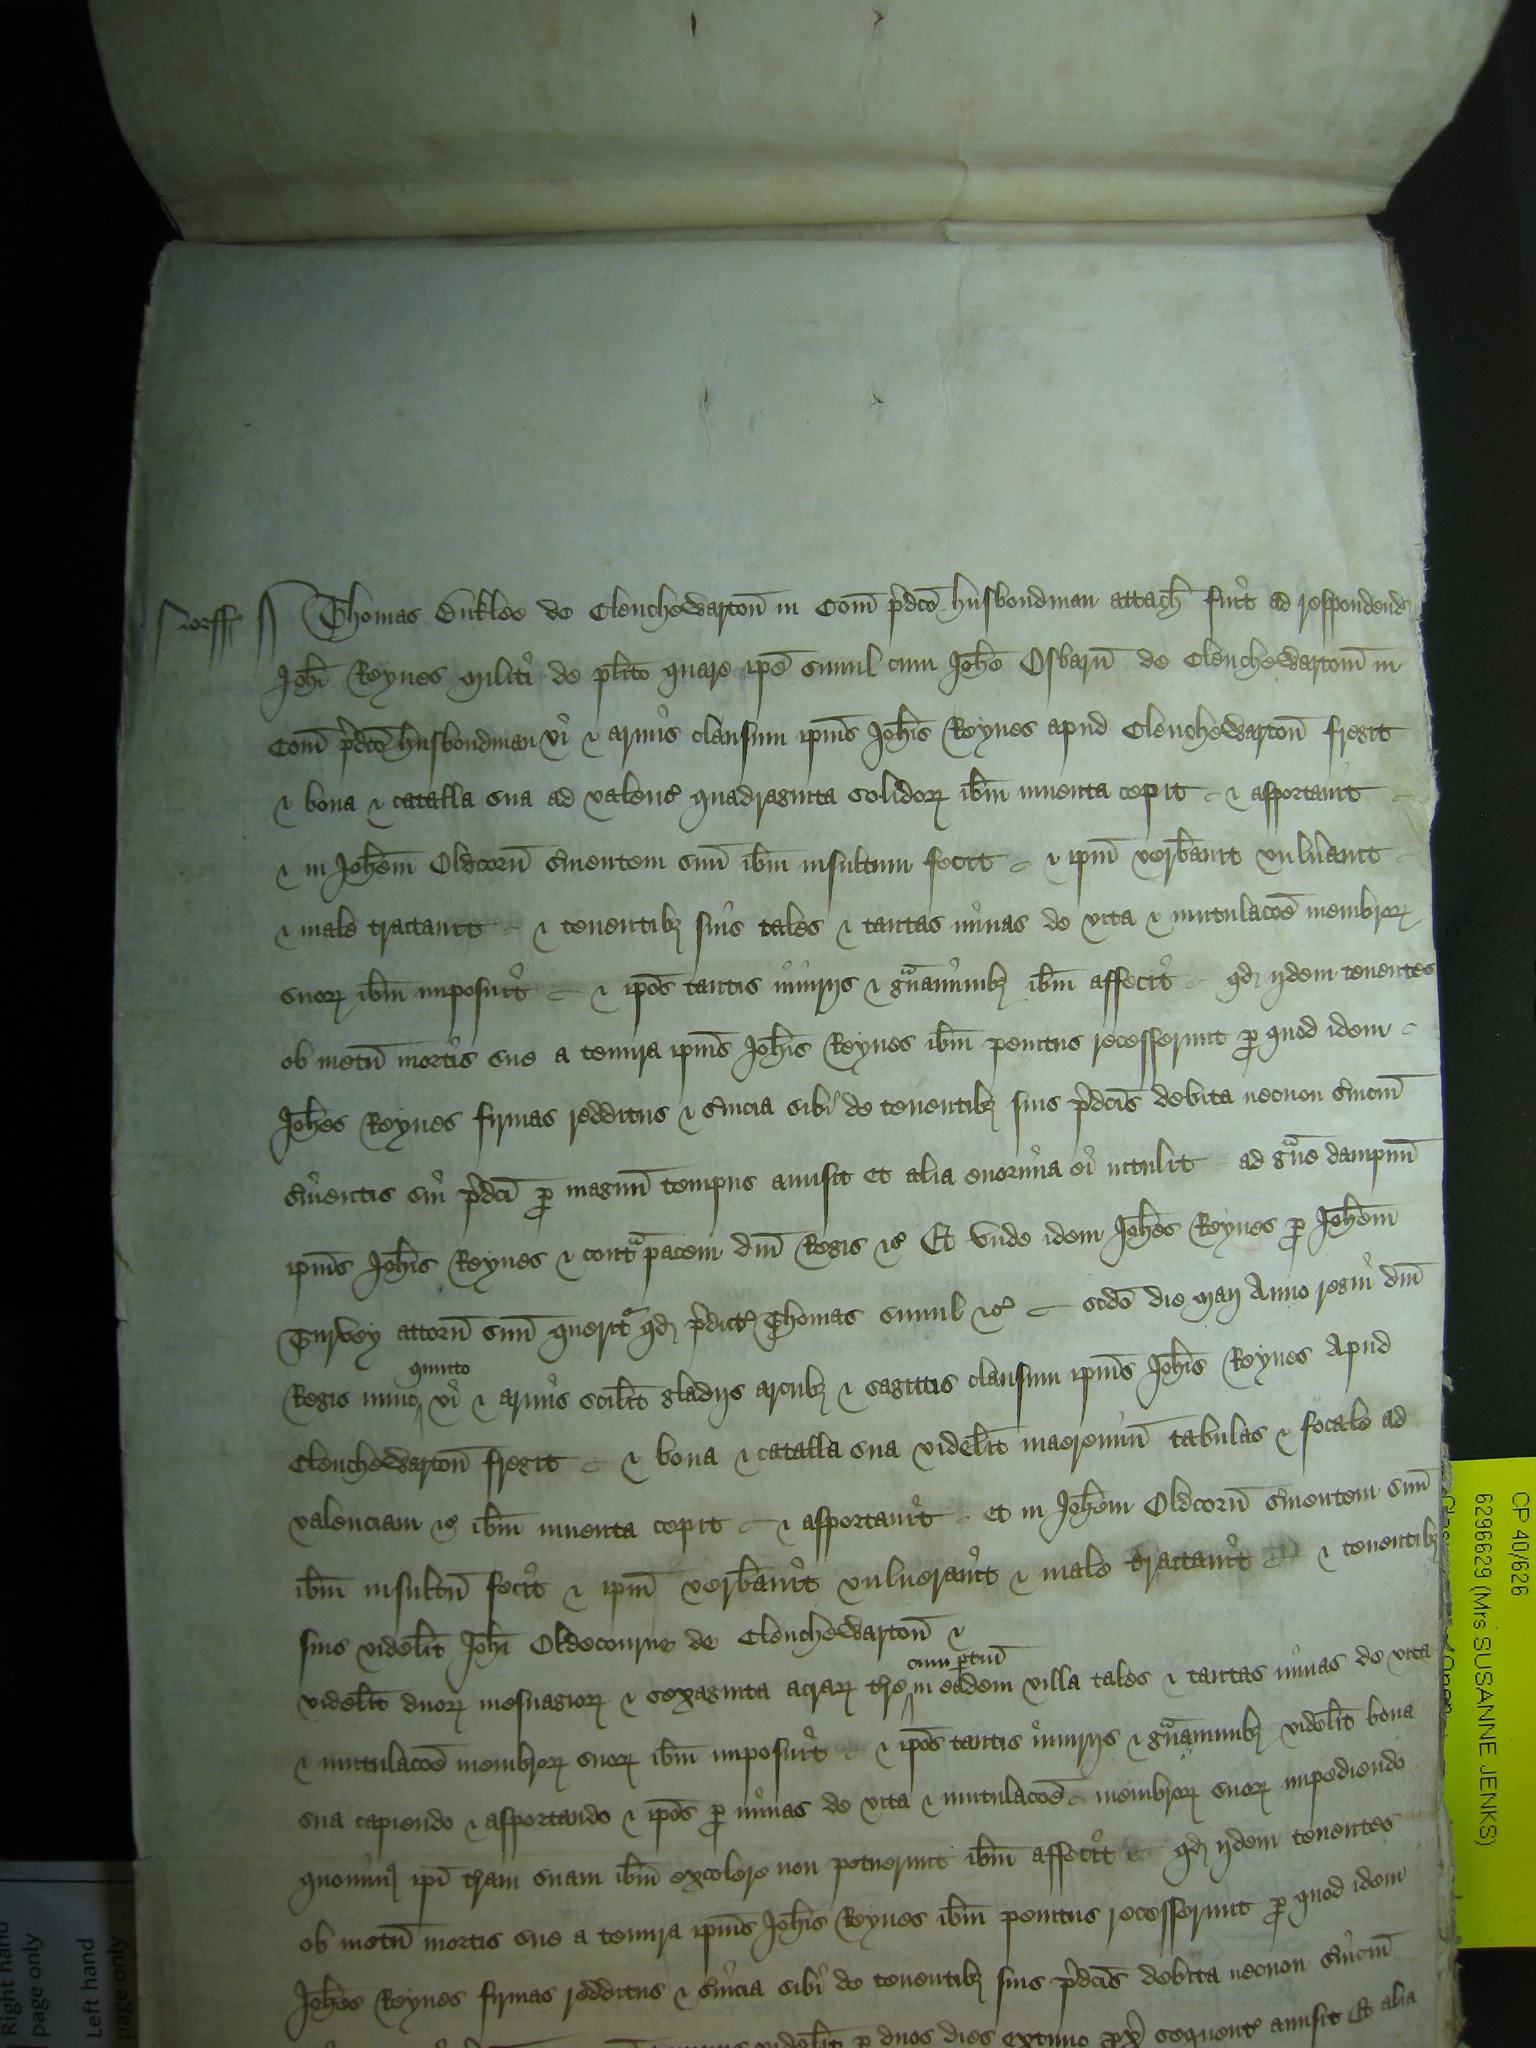 Norff Thomas Bukke de Clenchewarton̄ in Com̄ p̄dc̄o husbondman attach fuit ad respondend
Joh̄i Reynes militi de pl̄ito quare ip̄e simul cum Joh̄e Osbarn̄ de Clenchewarton̄ in
Com̄ p̄dc̄o husbondman vi & armis clausum ip̄ius Joh̄is Reynes apud Clenchewarton̄ fregit
& bona & catalla sua ad valenc̄ quadraginta solidoꝝ ib̄m inuenta cepit & asportauit
& in Joh̄em Oldcorn̄ s̄uientem suū ib̄m insultum fecit & ip̄m verb̄auit vuln̄auit
& male tractauit & tenentibꝫ suis tales & tantas minas de vita & mutilac̄oe membroꝝ
suoꝝ ib̄m imposuit & ip̄os tantis iniurijs & g̃uaminibꝫ ib̄m affecit qd̄ ijdem tenentes
ob metū mortis sue a tenura ip̄ius Joh̄is Reynes ib̄m penitus recesserunt ꝑ quod idem
Joh̄es Reynes firmas redditus & s̄uicia sibi de tenentibꝫ suis p̄dc̄is debita necnon s̄uiciū
s̄uientis sui p̄dc̄i ꝑ magnū tempus amisit et alia enormia ei intulit ad g̃ue dampnū
ip̄ius Joh̄is Reynes & cont̃ pacem dn̄i Regis &c̄ Et vnde idem Joh̄es Reynes ꝑ Joh̄em
Turvey attorn̄ suū querit̃ qd̄ p̄dict̄ Thomas simul &c̄ sc̄do die Maij Anno regni dn̄i
Regis nunc quinto vi & armis scil̄it gladijs arcubꝫ & sagittis clausum ip̄ius Joh̄is Reynes Apud
Clenchewarton̄ fregit & bona & catalla sua videl̄it maeremiū tabulas & focale ad
valenciam &c̄ ib̄m inuenta cepit & asportauit et in Joh̄em Oldcorn̄ s̄uientem suū
ib̄m insultū fecit & ip̄m verb̄auit vulnerauit & male tractauit & tenentibꝫ
suis videl̄it Joh̄i Oldecourne de Clenchewarton̄ &
videl̄it duoꝝ mesuagioꝝ & sexaginta acraꝝ t̄re cum ꝑtin̄ in eadem villa tales & tantas minas de vita
& mutilac̄oe membroꝝ suoꝝ ib̄m imposuit & ip̄os tantis iniurijs & g̃uaminibꝫ videl̄it bona
sua capiendo & asportando & ip̄os ꝑ minas de vita & mutilac̄oe membroꝝ suoꝝ impediendo
quominꝰ ip̄i t̄ram suam ib̄m excolere non potuerunt ib̄m affecit qd̄ ijdem tenentes
ob metū mortis sue a tenura ip̄ius Joh̄is Reynes ib̄m penitus recesserunt ꝑ quod idem
Joh̄es Reynes firmas redditus & s̄uicia sibi de tenentibꝫ suis p̄dc̄is debita necnon s̄uiciū
videl̄it ꝑ duos dies extunc ꝓx̄ sequent̄ amisit Et alia
CP 40/626
6296629 (Mrs SUSANNE JENKS)
Right hand
page only
Left hand
page only